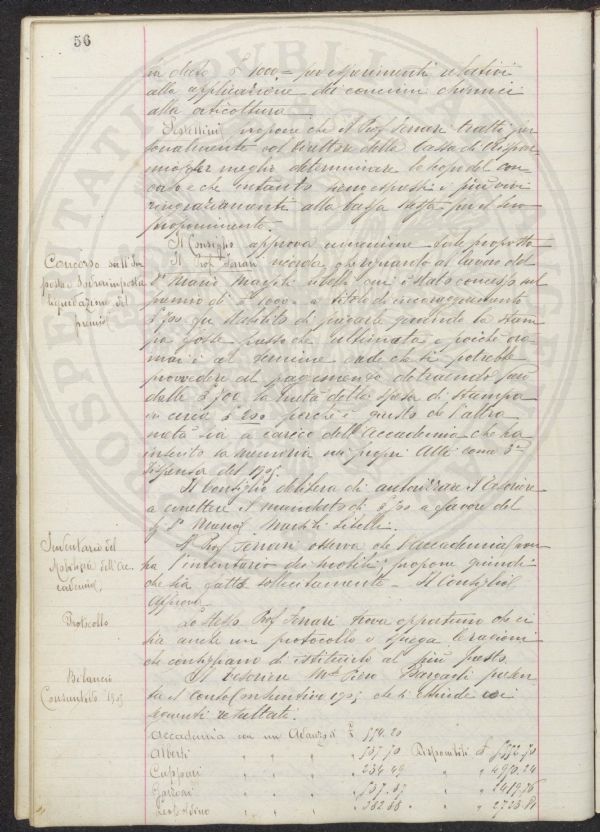 56
in data £ 1000,= per esperimenti relativi
alla applicazione dei concimi chimici
alla orticoltura.
propone che il Prof. Ferrari tratti per
sonalmente col Direttore della Cassa di Rispar
mio per meglio determinare lo scopo del con
corso e che intanto sieno espressi i più vivi
ringraziamenti alla Cassa stessa per il suo
proponimento.
Il Consiglio approva unanime tale proposta
Concorso sull'Im
posta e Sovraimposta
liquidazione del
premio
Il Prof. Ferrari ricorda, riguardo al lavoro del
Sr. Mario è stato concesso sul
premio di £ 1000. a titolo di incoraggiamento
£ 500 fu stabilito di pagarle quando la stam
pa fosse stata ultimata e poichè or
mai è al termine crede che si potrebbe
provvedere al pagamento detraendo però
dalle £ 500 la metà della spesa di stampa
in circa £ 200 perchè è giusto che l'altra
metà sia a carico dell'Accademia che ha
inserito la memoria nei propri Atti come 3a
dispensa del 1905.
Il Consiglio delibera di autorizzare il Tesoriere
a emettere il mandato di £ 500 a favore del
Sr. Mario
Inventario del
Mobiliare dell'Ac
cademia
Il Prof. Ferrari osserva che l'Accademia non
ha l'inventario dei mobili; propone quindi
che sia fatto sollecitamente. Il Consiglio
approva.
Protocollo
Lo stesso Prof. Ferrari trova opportuno che ci
sia anche un protocollo e spiega le ragioni
che consigliano di istituirlo al più presto.
Bilancio
Consuntivo 1905
Il Tesoriere Piero presen
ta il Conto Consuntivo 1905 che si chiude coi
seguenti resultati.
Accademia con un Avanzo di £ 574.20
Alberti " " " " 537.70 Disponibili £
Cuppari " " " " 234.49 " " 4973.24
" " " " 537.37 " " 2419.76
" " " " 382.88 " " 2723.81